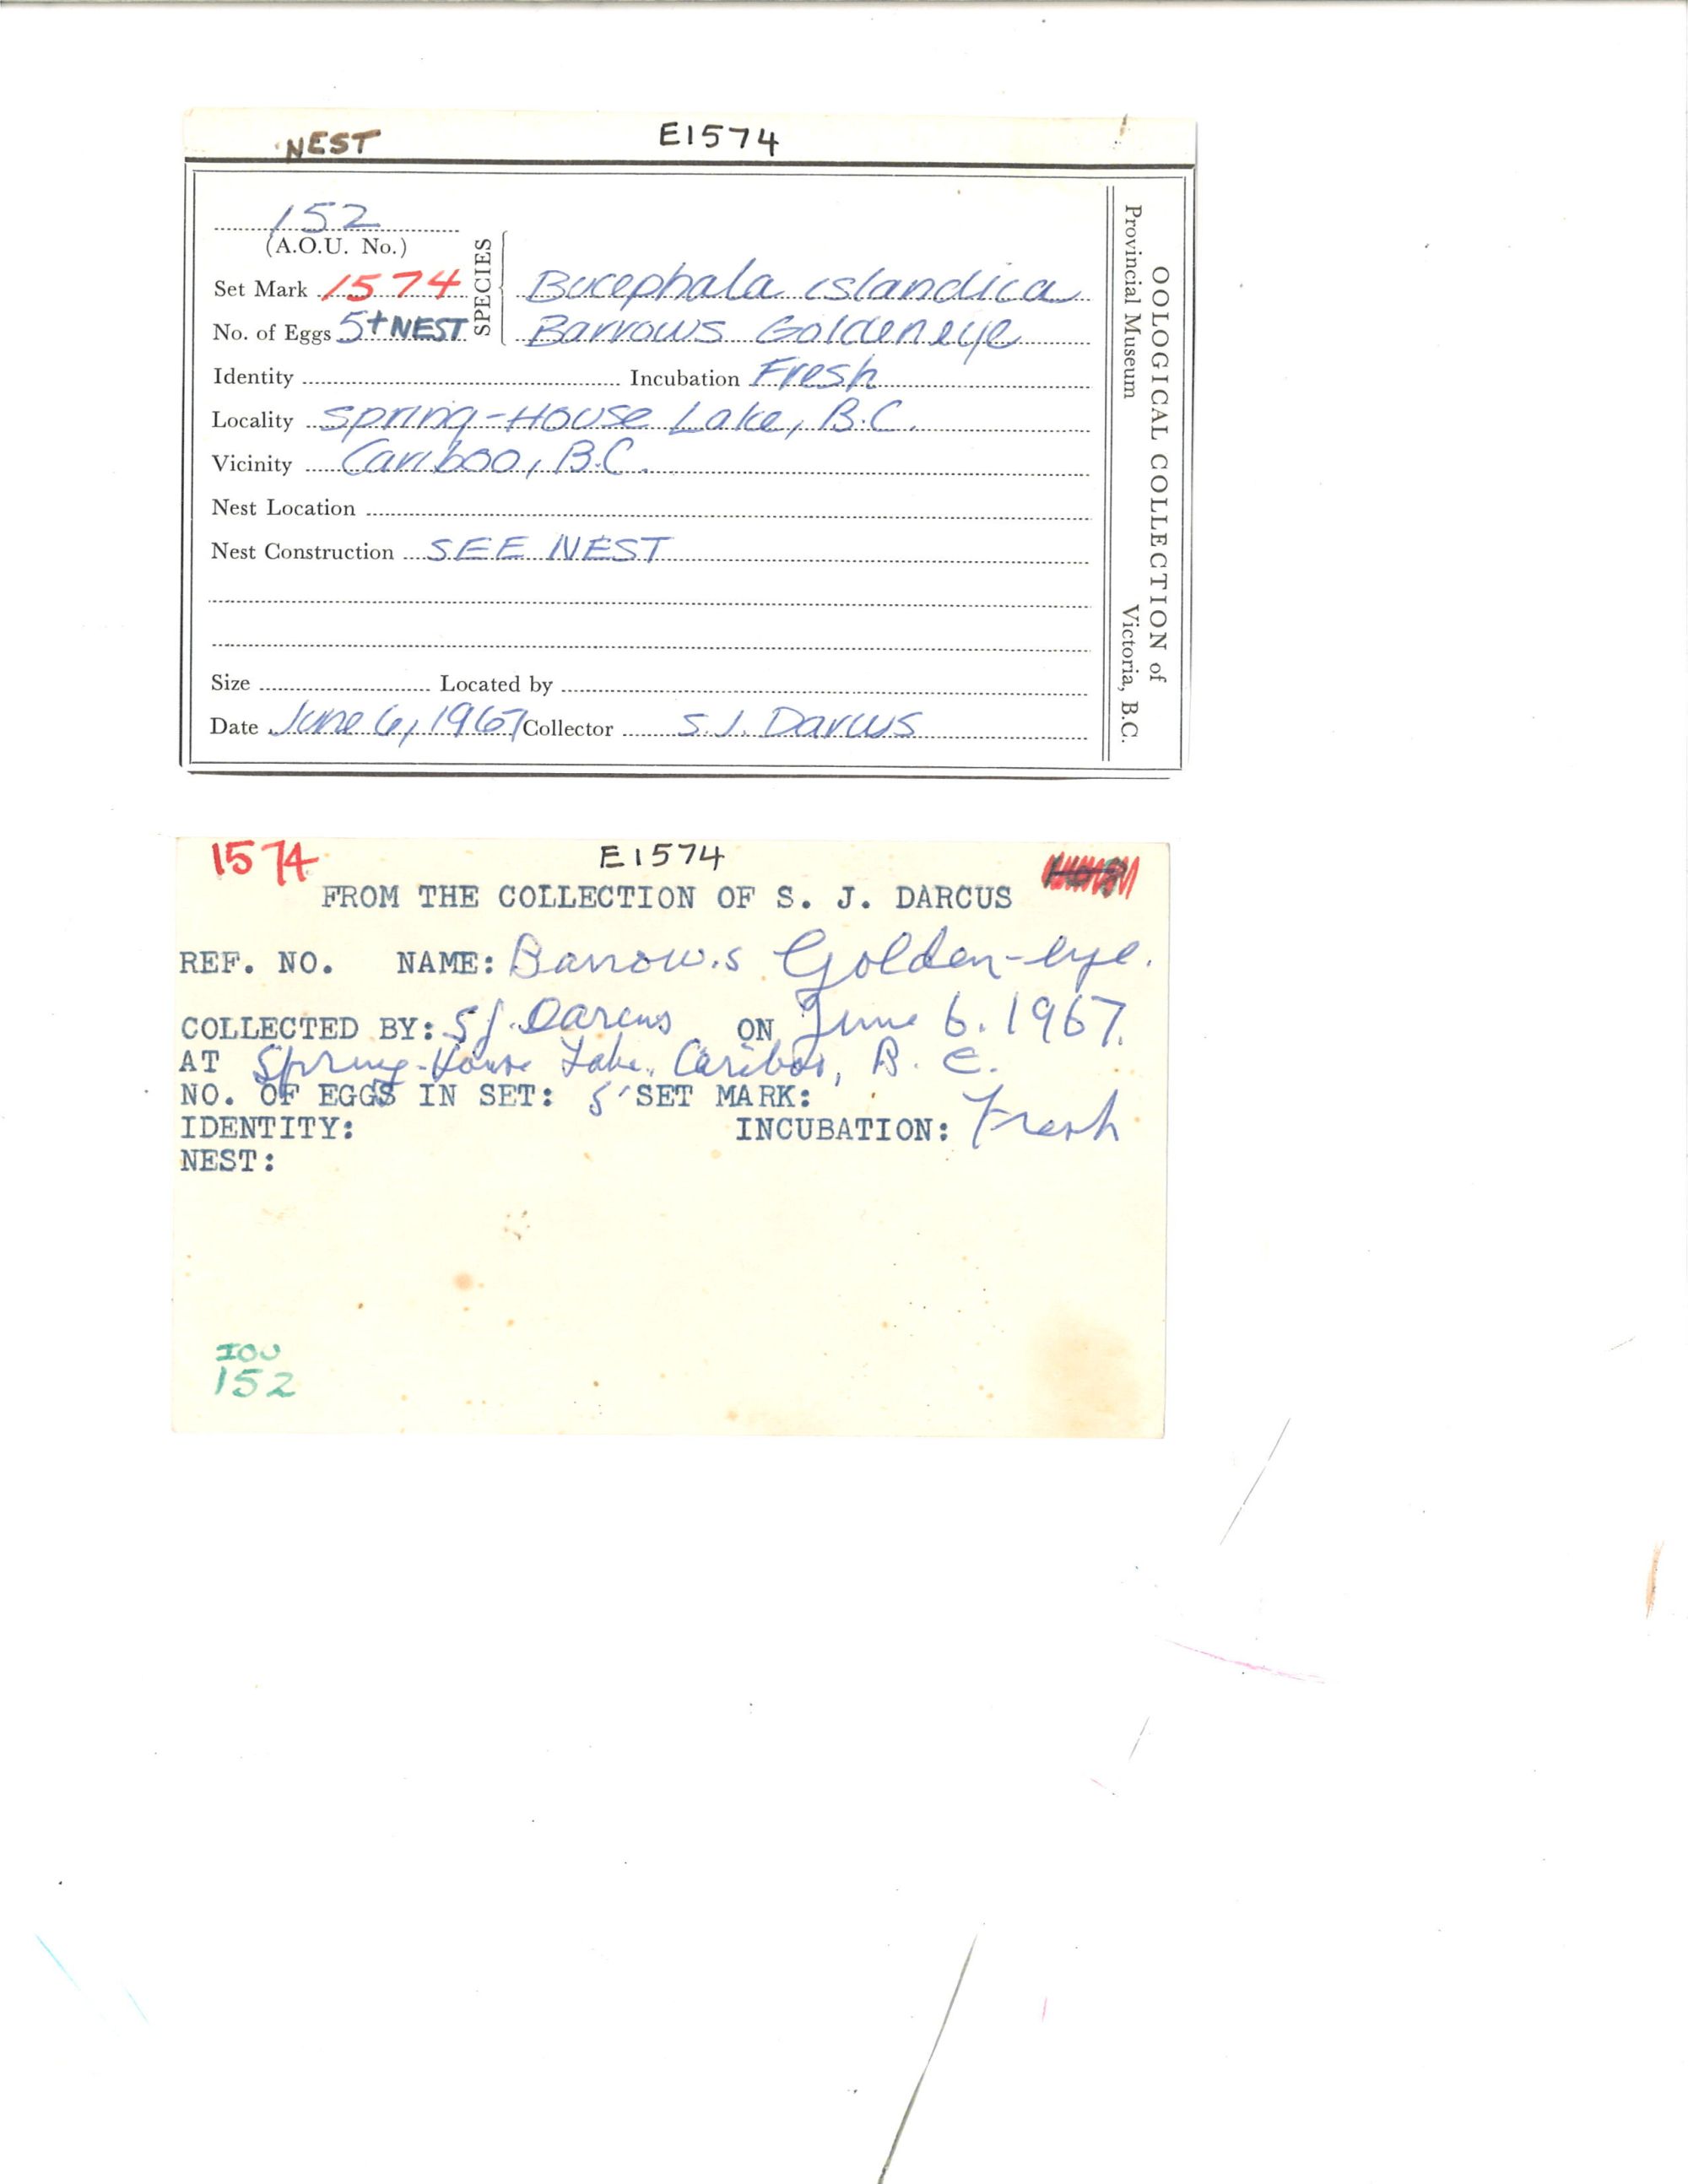 NEST E1574
152
(A.O.U. No.)
Set Mark 1574
No. of Eggs 5+NEST
SPECIES
Bucephala islandica
Barrows Goldeneye
Identity Incubation Fresh
Locality Spring-House Lake, B.C.
Vicinity Cariboo, B.C.
Nest Location
Nest Construction SEE NEST
Size Located by
Date June 6, 1967 Collector S.J. Darcus
OOLOGICAL COLLECTION of
Provincial Museum Victoria, B.C.
1574 E1574
FROM THE COLLECTION OF S. J. DARCUS
REF. NO. NAME: Barrow.s Golden-eye.
COLLECTED BY: S J. Darcus ON June 6. 1967.
AT Spring-House Lake, Cariboo, B. C.
NO. OF EGGS IN SET: 5 SET MARK:
IDENTITY: INCUBATION: Fresh
NEST:
IOU
152